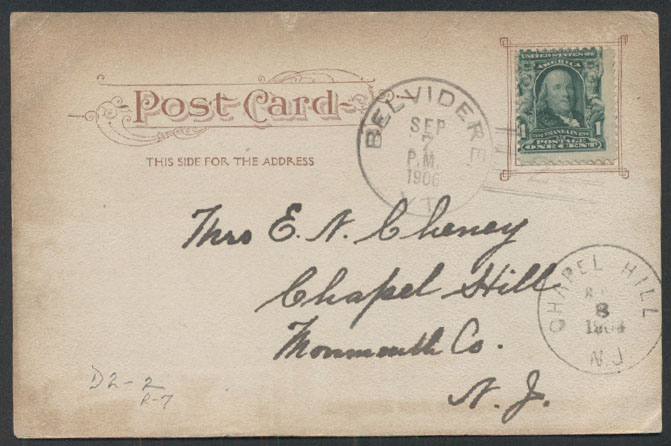 UNITED STATES OF
AMERICA
1 FRANKLIN 1
POSTAGE
ONE CENT
POST CARD
THIS SIDE FOR THE ADDRESS
BELVIDERE
SEP
2
P.M.
1906
VT
Mrs E. N. Cheney
Chapel Hill
Monmouth Co.
N. J.
CHAPEL HILL
8
N.J
D2-2
R-7